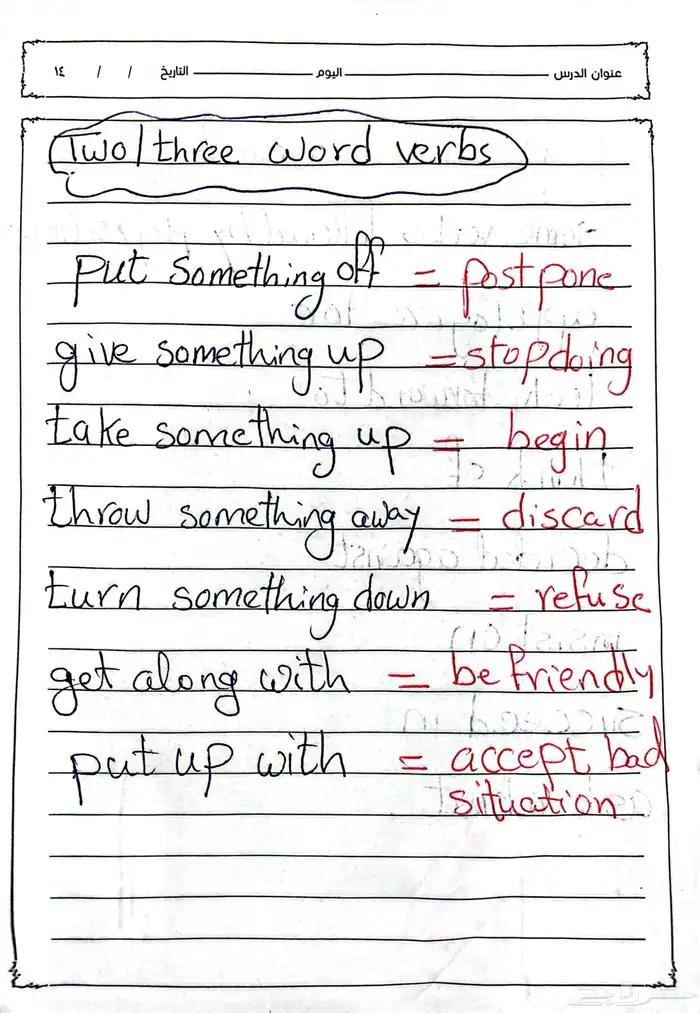 عنوان الدرس اليوم التاريخ / / ١٤
Two/three word verbs
put something off = postpone
give something up = stop doing
take something up = begin
throw something away = discard
turn something down = refuse
get along with = be friendly
put up with = accept bad
situation
حراج